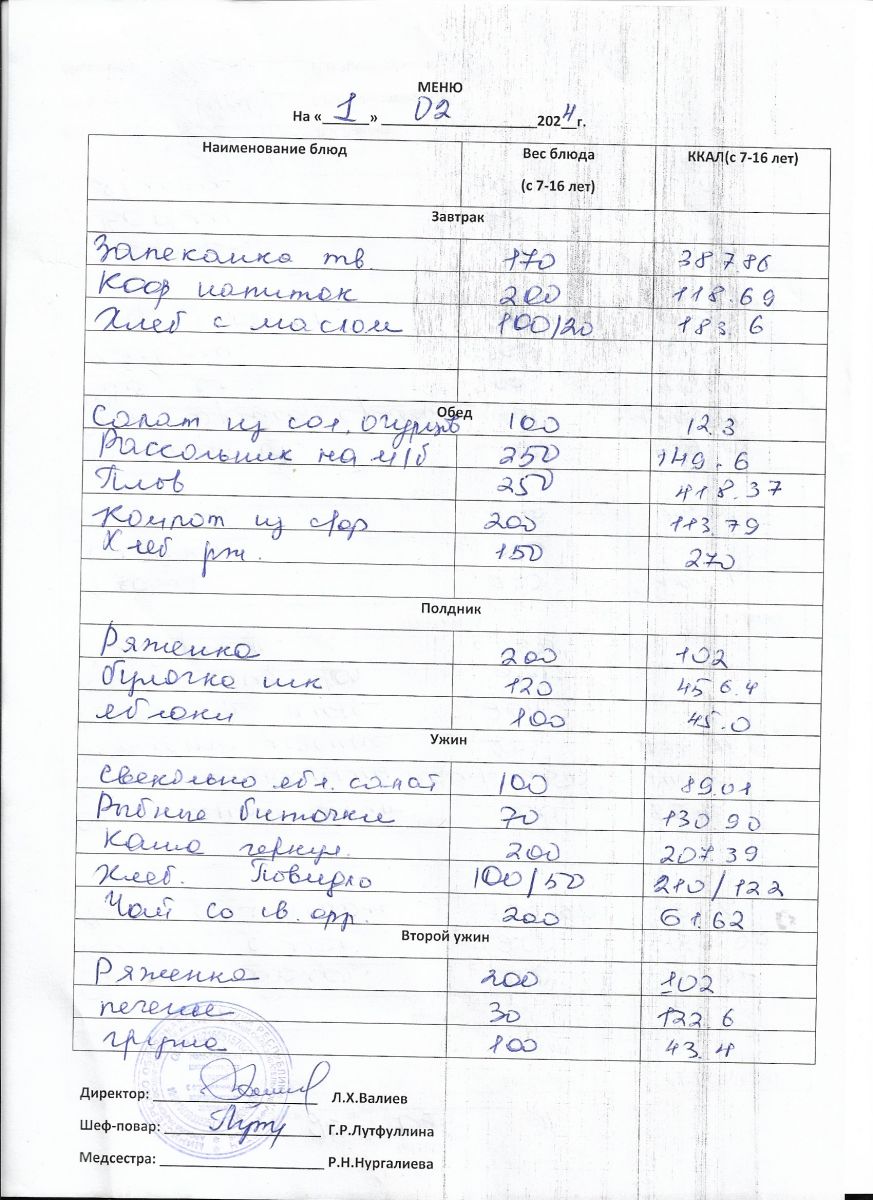 МЕНЮ
На «1» 02 2024г.
Наименование блюд Вес блюда (с 7-16 лет) ККАЛ(с 7-16 лет)
Завтрак
Запеканка тв. 170 387.86
Коф напиток 200 118.69
Хлеб с маслом 100/20 183.6
Обед
Салат из сол. огурцов 100 12.3
Рассольник на м/б 250 149.6
Плов 250 418.37
Компот из с/фр 200 113.79
Хлеб рж. 150 270
Полдник
Ряженка 200 102
булочка шк 120 456.4
яблоки 100 45.0
Ужин
Свекольно ябл. салат 100 89.01
Рыбные биточки 70 130.90
Каша геркул. 200 207.39
Хлеб. Повидло 100/50 210/122
Чай со св. фр. 200 61.62
Второй ужин
Ряженка 200 102
печенье 30 122.6
груша 100 43.4
Директор: Л.Х.Валиев
Шеф-повар: Г.Р.Лутфуллина
Медсестра: Р.Н.Нургалиева